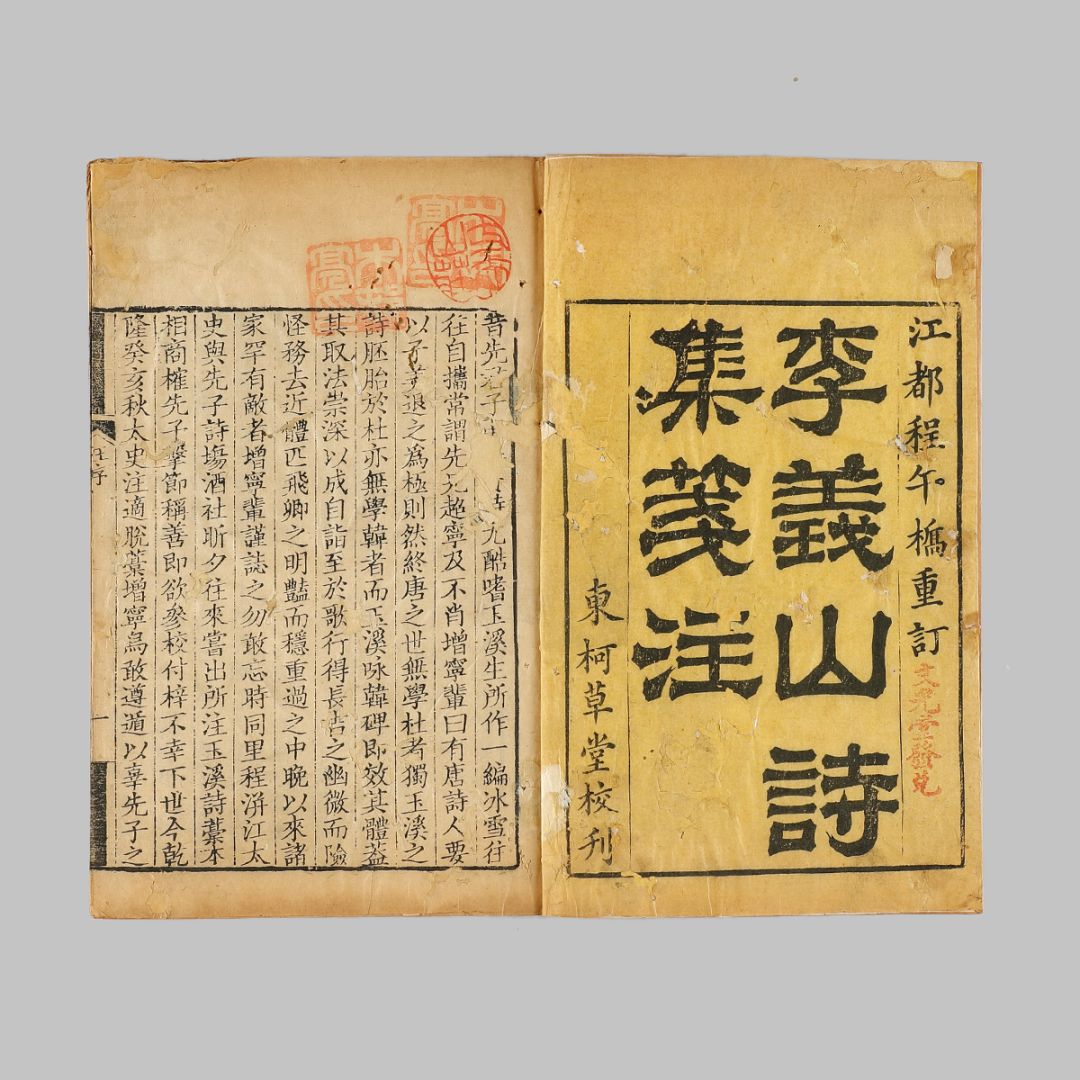 江都程午橋重訂
文光堂發兌
李義山詩
集箋注
東柯草堂校刊
昔先君子尤酷嗜玉溪生所作一編冰雪往
往自攜常謂先兄越寧及不肖增寧輩曰有唐詩人要
以子美退之爲極則然終唐之世無學杜者獨玉溪之
詩胚胎於杜亦無學韓者而玉溪咏韓碑即效其體蓋
其取法崇深以成自詣至於歌行得長吉之幽微而險
怪務去近體匹飛卿之明豔而穩重過之中晚以來諸
家罕有敵者增寧輩謹誌之勿敢忘時同里程洴江太
史與先子詩塲酒社昕夕往來嘗出所注玉溪詩藁本
相商榷先子擊節稱善即欲參校付梓不幸下世今乾
隆癸亥秋太史注適脫藁增寧烏敢遵遁以辜先子之
序
一